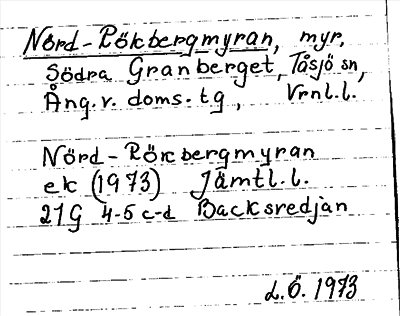 Nörd-Rökbergmyran, myr,
Södra Granberget, Tåsjö sn,
Ång.v. doms.tg, Vrnl.l.
Nörd-Rökbergmyran
ek (1973) Jämtl.l.
21G 4-5 c-d Backsredjan
L.Ö. 1973